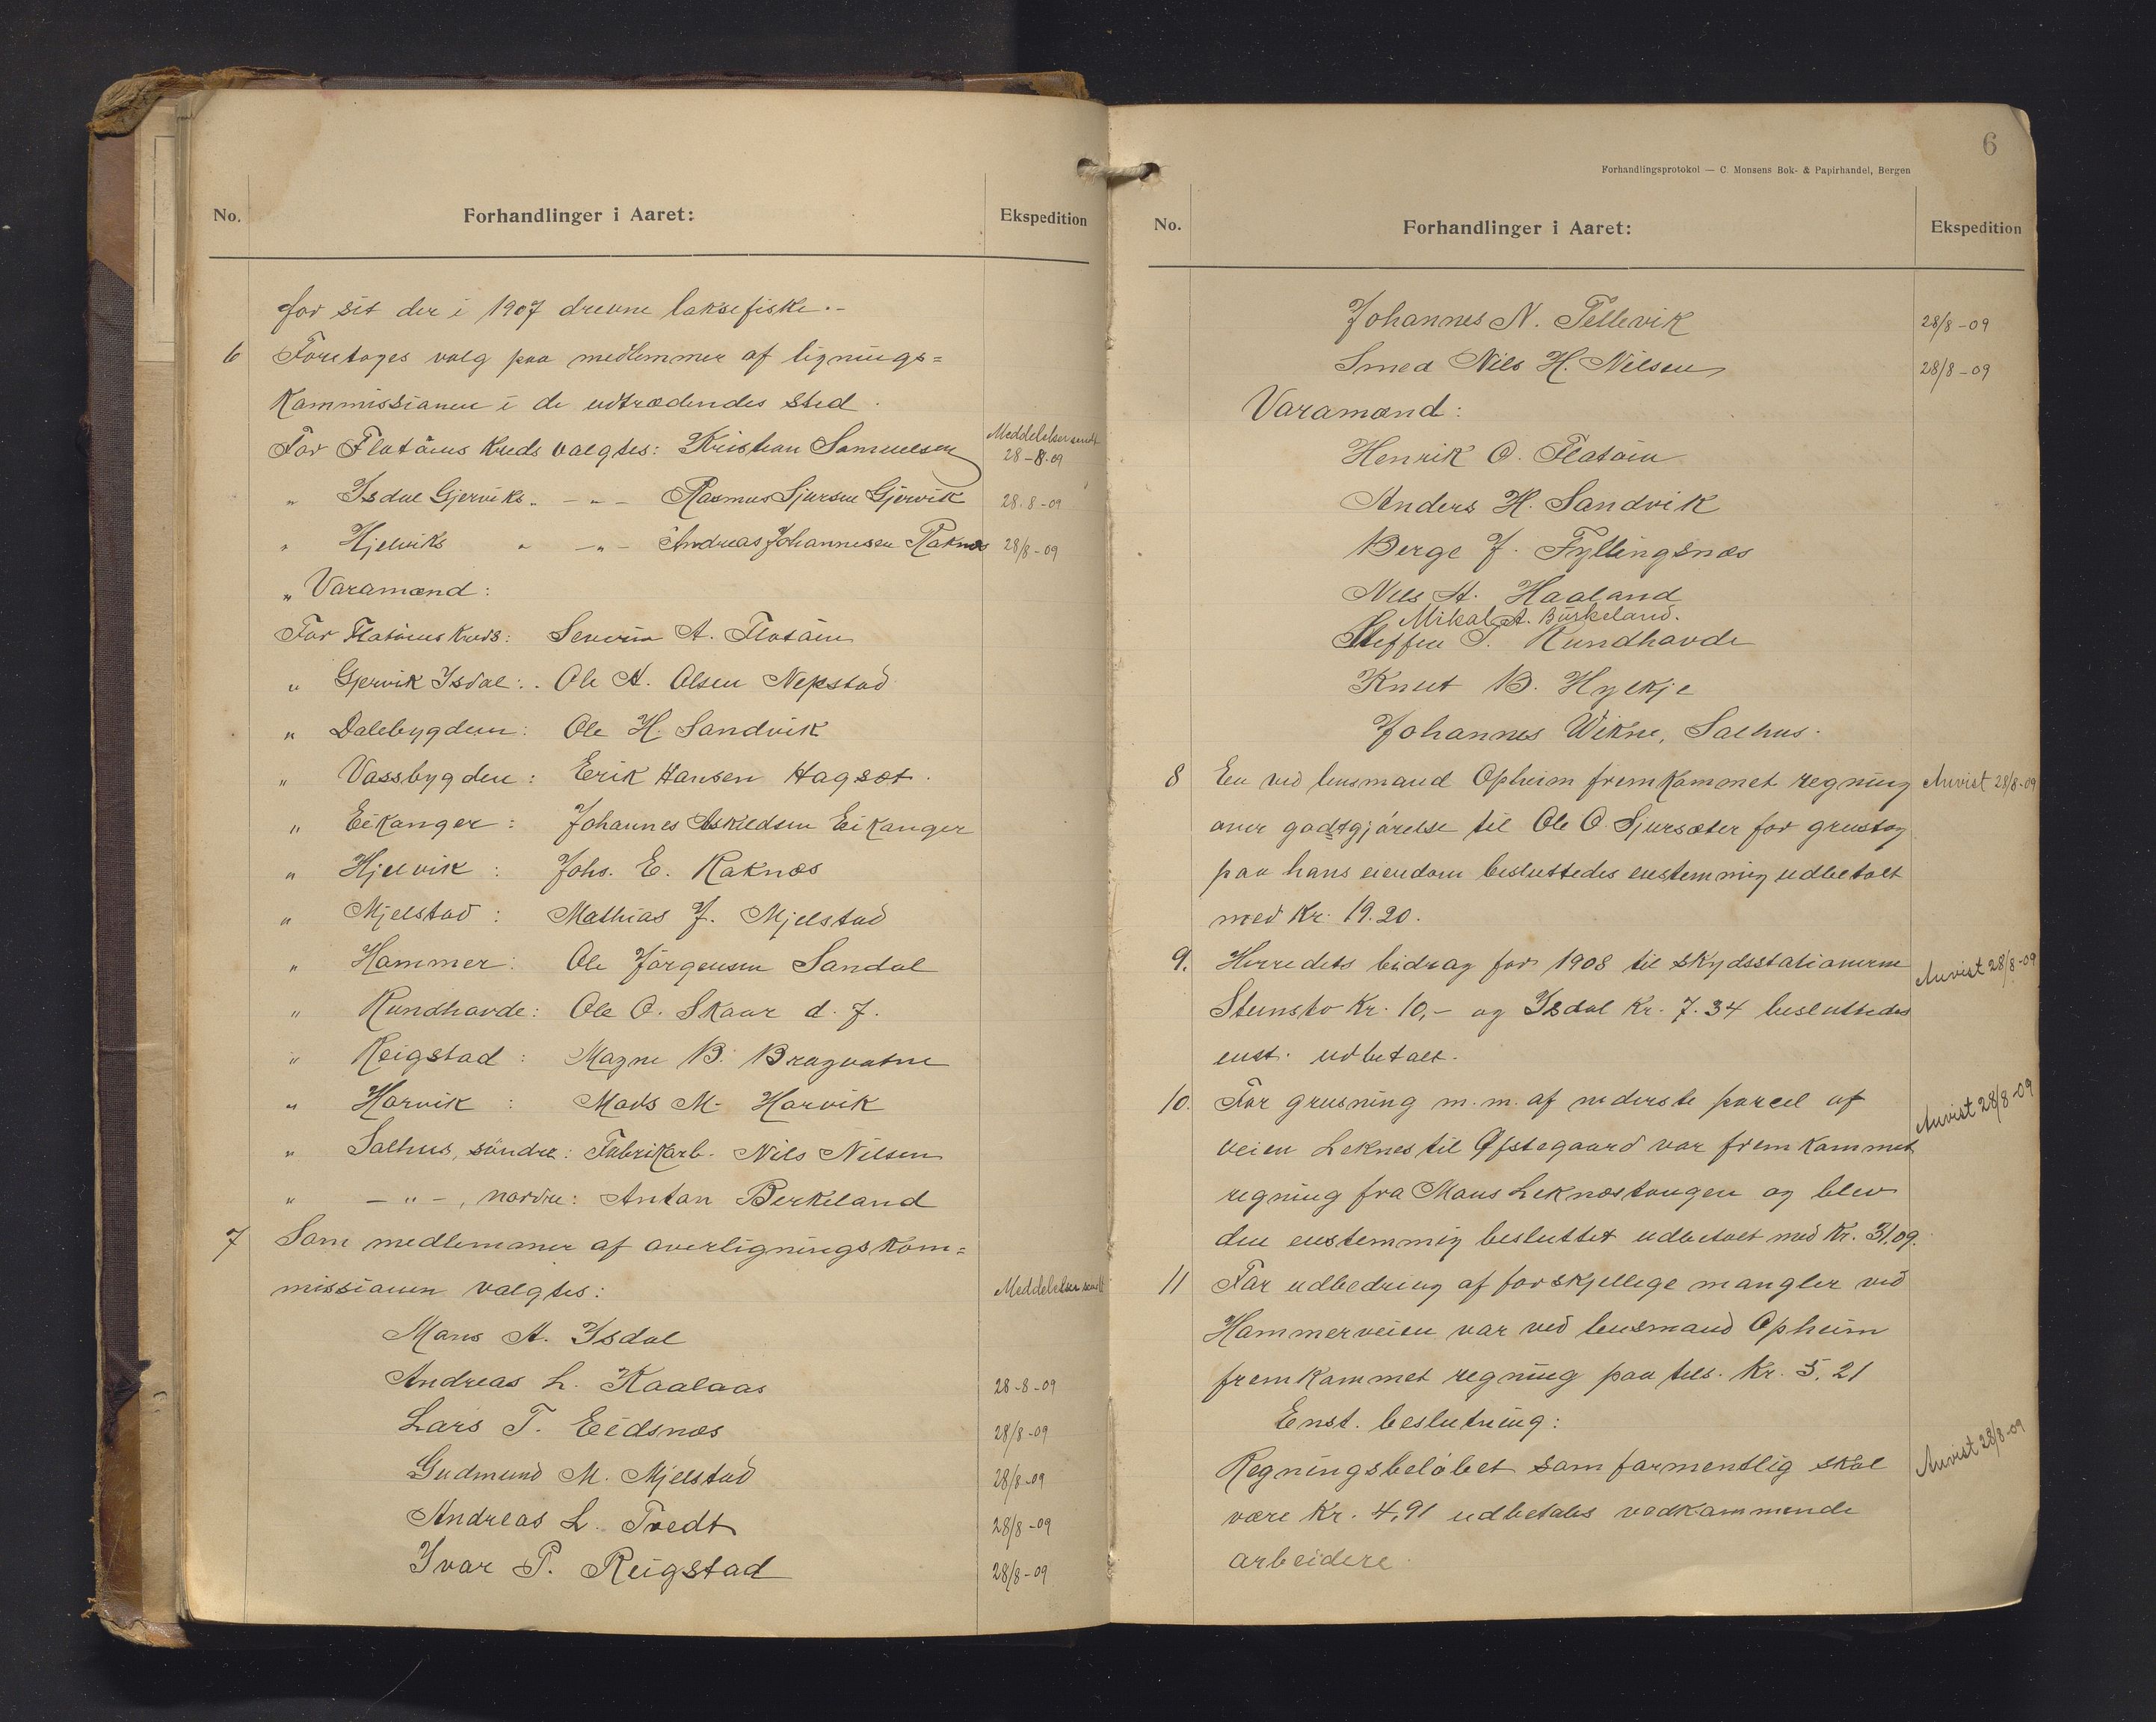 No. Forhandlinger i Aaret: Ekspedition
for sit der i 1907 drevne laksefiske.-
6 Foretoges valg paa medlemmer af lignings=
kommissionen i de udtrædendes sted.
For Flatöens kreds valgtes: Kristian Samuelsen Meddelelser sendt 28-8-09
" Isdal Gjerviks " - " - Rasmus Sjursen Gjervik 28.8-09
" Hjelviks " - " - Andreas Johannesen Raknes 28/8-09
" Varamænd:
For Flatöens kreds: Severin A. Flatöen
" Gjervik Isdal: Ole A. Olsen Nepstad
" Dalebygden: Ole H. Sandvik
" Vassbygden: Erik Hansen Hagsæt.
" Eikanger: Johannes Askildsen Eikanger
" Hjelvik: Johs. E. Raknæs
" Mjelstad: Mathias J. Mjelstad
" Hammer: Ole Jörgensen Sandal
" Rundhovde: Ole O. Skaar d. y.
" Reigstad: Magne B. Bragvatne
" Horvik: Mads M. Horvik
" Salhus, söndre: Fabrikarb. Nils Nilsen
" - " -, nordre: Anton Berkeland
7 Som medlemmer af overligningskom=
missionen valgtes: Meddelelser sendt
Mans A. Isdal
Andreas L. Kaalaas 28-8-09
Lars T. Eidsnæs 28/8-09
Gudmund M. Mjelstad 28/8-09
Andreas L. Tvedt 28/8-09
Ivar P. Reigstad 28/8-09
6
Forhandlingsprotokol — C. Monsens Bok- & Papirhandel, Bergen
No. Forhandlinger i Aaret: Ekspedition
Johannes N. Tellevik 28/8-09
Smed Nils H. Nilsen 28/8-09
Varamænd:
Henrik O. Flatöen
Anders H. Sandvik
Berge J. Fyllingsnæs
Nils A. Haaland
Mikal A. Birkeland.
Steffen T. Rundhovde
Knut B. Hylkje
Johannes Wikne, Salhus.
8 En ved lensmand Opheim fremkommet regning Anvist 28/8-09
over godtgjörelse til Ole O. Sjursæter for grustag
paa hans eiendom besluttedes enstemmig udbetalt
med Kr. 19.20.
9. Herredets bidrag for 1908 til skydsstationerne Anvist 28/8-09
Stensto Kr. 10,- og Isdal Kr. 7.34 besluttedes
enst. udbetalt.
10. For grusning m. m. af nederste parcel af Anvist 28/8-09
veien Leknes til Øfstegaard var fremkommet
regning fra Mans Leknæstangen og blev
den enstemmig besluttet udbetalt med Kr. 31,09.
11 For udbedring af forskjellige mangler ved
Hammerveien var ved lensmand Opheim
fremkommet regning paa tils. Kr. 5,21
Enst. beslutning:
Regningsbelöbet som formentlig skal Anvist 28/8-09
være Kr. 4,91 udbetales vedkommende
arbeidere.